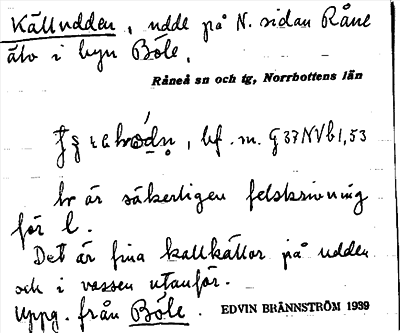 Källudden, udde på N. sidan Råne
älv i byn Böle.
Råneå sn och tg, Norrbottens län
bf. m. G 37 NV b 1,53
br är säkerligen felskrivning
för l.
Det är fina kallkällor på udden
och i vassen utanför.
Uppg. från Böle. EDVIN BRÄNNSTRÖM 1939